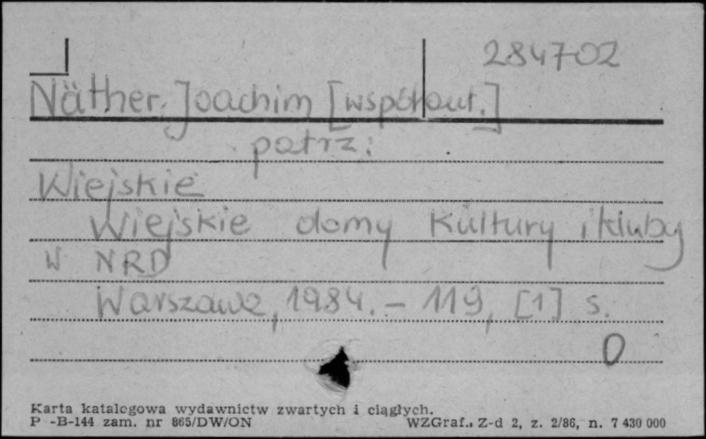 284702
Näther, Joachim [współaut.]
patrz:
Wiejskie
Wiejskie domy kultury i kluby
w NRD
Warszawa, 1984. - 119, [1] s.
0
Karta katalogowa wydawnictw zwartych i ciągłych.
P -B-144 zam. nr 865/DW/ON WZGraf., Z-d 2, z. 2/86, n. 7 430 000